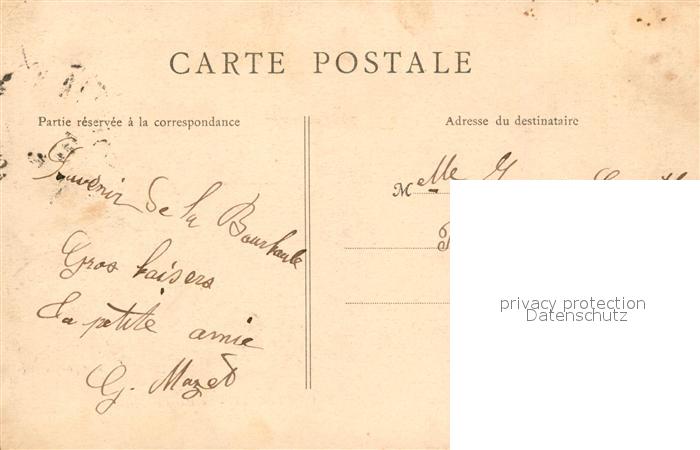 CARTE POSTALE
Partie réservée à la correspondance
Adresse du destinataire
Souvenir de la Bourboule
Gros baisers
Ta petite amie
G. Mazet
Melle
privacy protection
Datenschutz